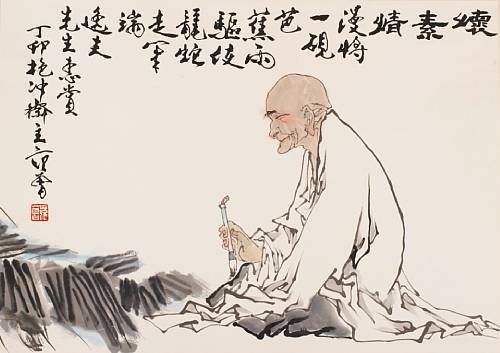 懷
素
情
漫将
一硯
芭
蕉雨
驅使
龍蛇
走筆
端
逸夫
先生惠賞
丁卯抱冲齋主范曾